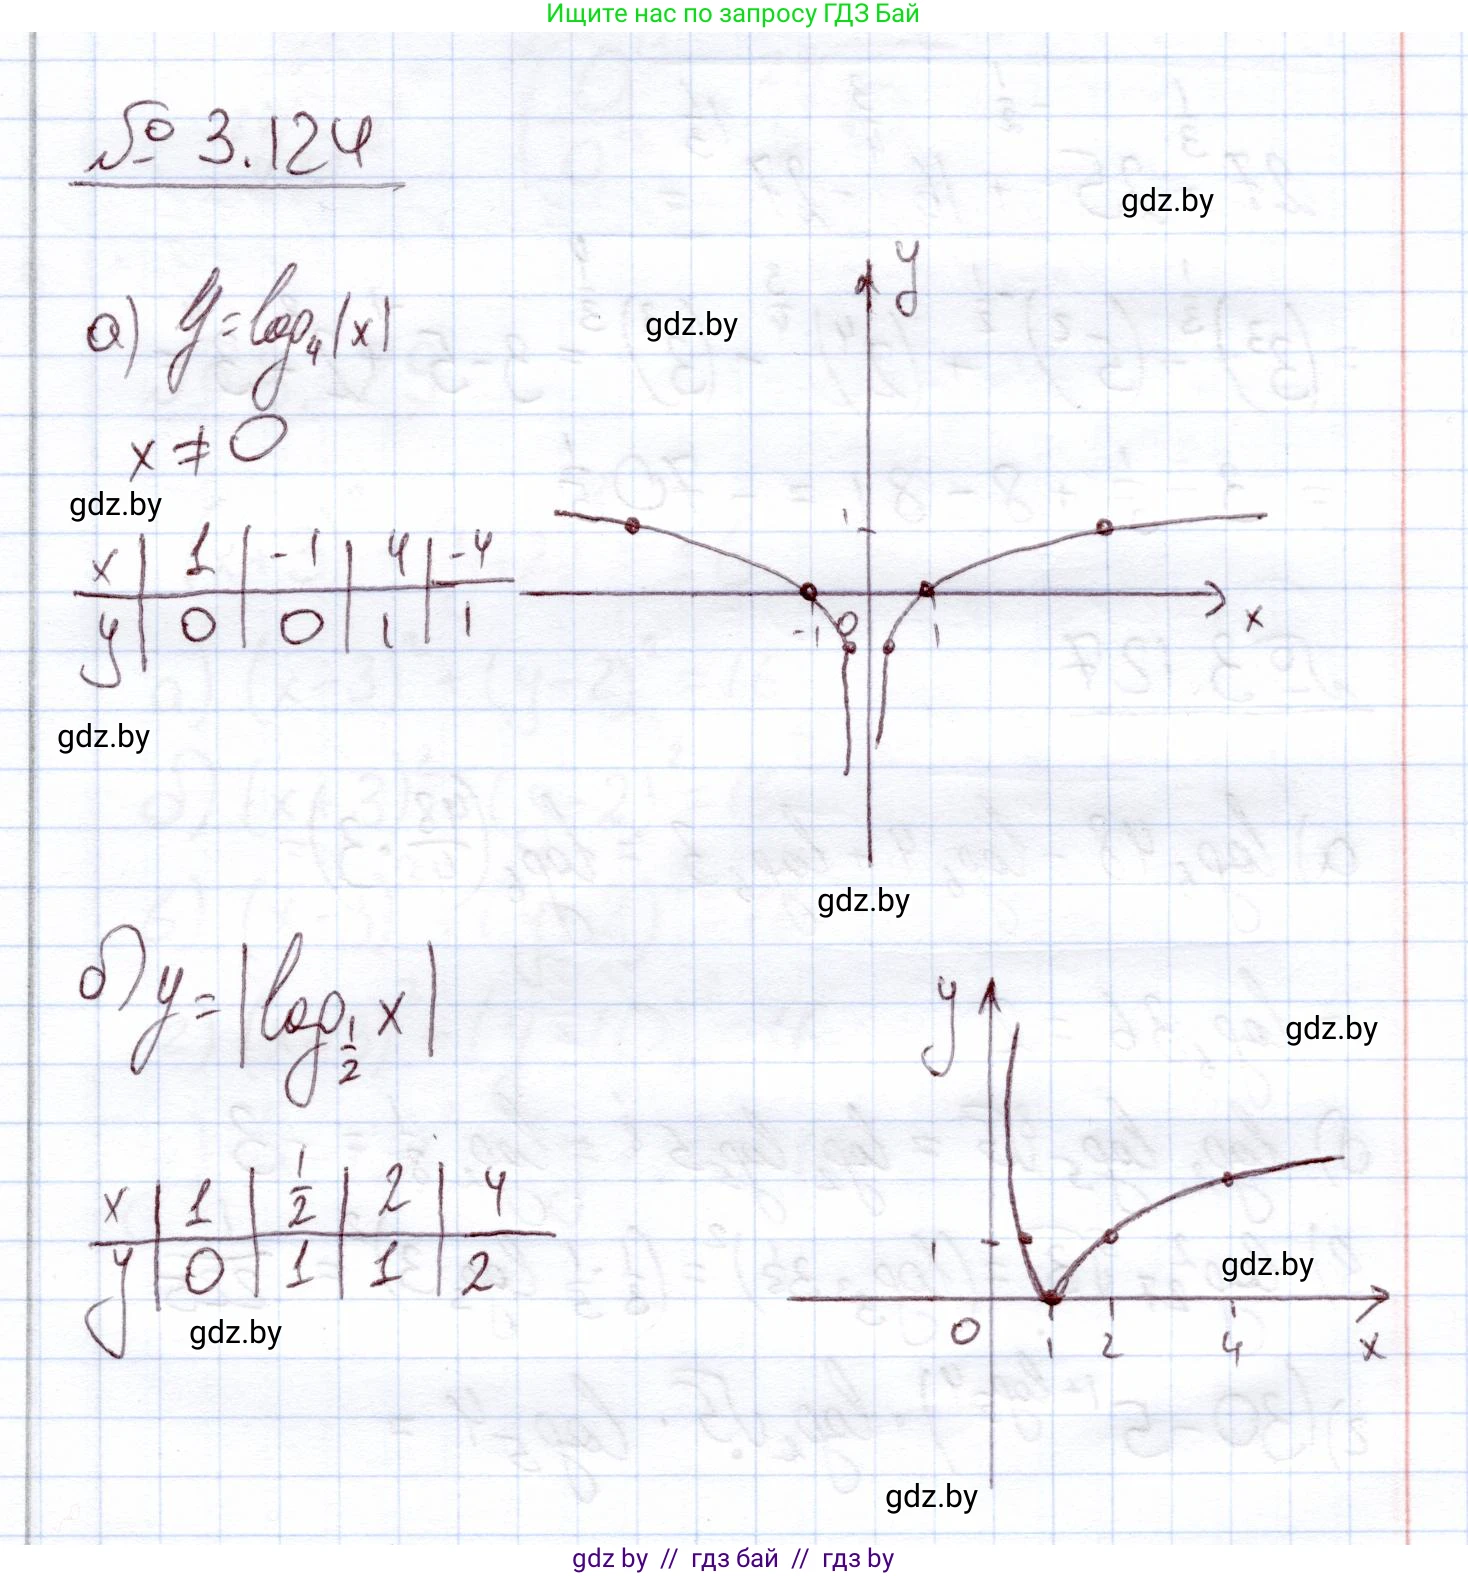 Ищите нас по запросу ГДЗ Бай
№ 3.124
gdz.by
а) y = log₄|x|
gdz.by
y
x ≠ 0
gdz.by
x | 1 | -1 | 4 | -4
y | 0 | 0 | 1 | 1
1
-1 0 1 x
gdz.by
gdz.by
б) y = |log_{1/2} x|
y
gdz.by
x | 1 | 1/2 | 2 | 4
y | 0 | 1 | 1 | 2
1
gdz.by
gdz.by
0 1 2 4 x
gdz.by
gdz by // гдз бай // гдз by